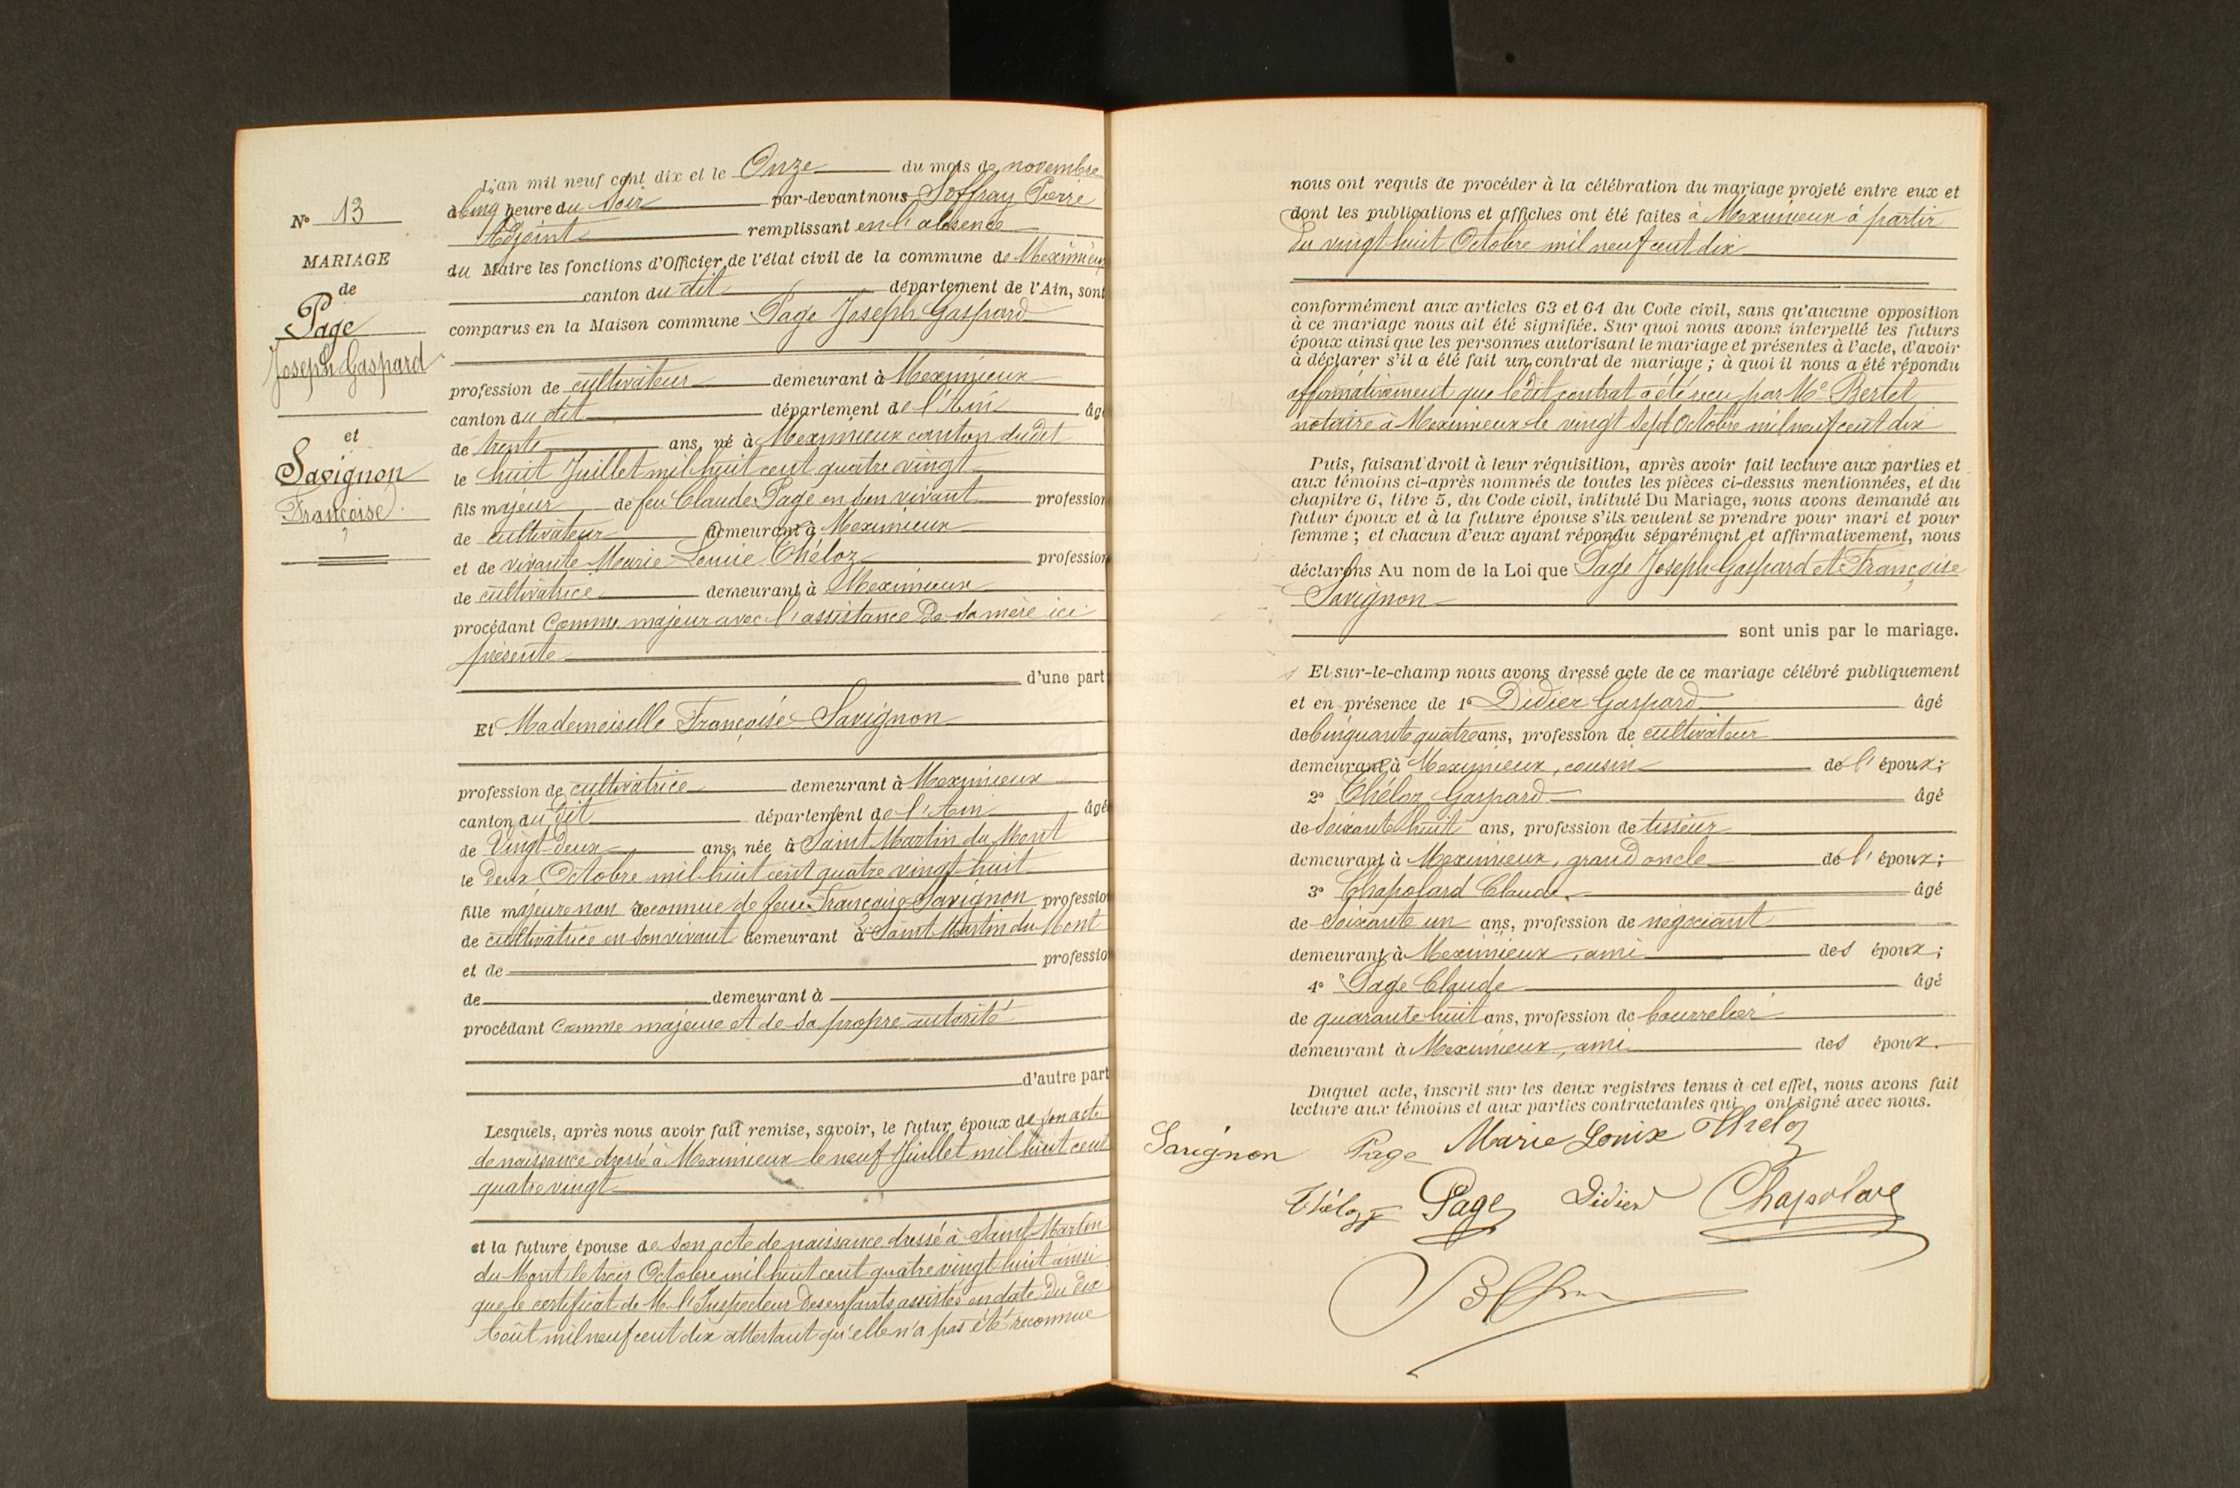 N° 13
MARIAGE
de
Page
Joseph Gaspard
et
Savignon
Françoise
L'an mil neuf cent dix et le Onze du mois de novembre
à Cinq heure du Soir par-devant nous Joffray Pierre
Adjoint remplissant en l'absence
du Maire les fonctions d'Officier de l'état civil de la commune de Meximieux
canton du dit département de l'Ain, sont
comparus en la Maison commune Page Joseph Gaspard
profession de cultivateur demeurant à Meximieux
canton du dit département de l'Ain âgé
de trente ans, né à Meximieux canton dudit
le huit Juillet mil huit cent quatre vingt
fils majeur de feu Claude Page en son vivant profession
de cultivateur demeurant à Meximieux
et de vivante Marie Louise Théloz profession
de cultivatrice demeurant à Meximieux
procédant Comme majeur avec l'assistance de sa mère ici
présente
d'une part
Et Mademoiselle Françoise Savignon
profession de cultivatrice demeurant à Meximieux
canton du dit département de l'Ain âgé
de Vingt-deux ans, née à Saint Martin du Mont
le deux Octobre mil huit cent quatre vingt huit
fille majeure non reconnue de feue Françoise Savignon profession
de cultivatrice en son vivant demeurant à Saint Martin du Mont
et de profession
de demeurant à
procédant Comme majeure et de sa propre autorité
d'autre part
Lesquels, après nous avoir fait remise, savoir, le futur époux de son acte
de naissance dressé à Meximieux le neuf Juillet mil huit cent
quatre vingt
et la future épouse de son acte de naissance dressé à Saint Martin
du Mont le trois Octobre mil huit cent quatre vingt huit ainsi
que le certificat de M. l'Inspecteur des enfants assistés en date du dix
Août mil neuf cent dix attestant qu'elle n'a pas été reconnue
nous ont requis de procéder à la célébration du mariage projeté entre eux et
dont les publications et affiches ont été faites à Meximieux à partir
du vingt huit Octobre mil neuf cent dix
conformément aux articles 63 et 64 du Code civil, sans qu'aucune opposition
à ce mariage nous ait été signifiée. Sur quoi nous avons interpellé les futurs
époux ainsi que les personnes autorisant le mariage et présentes à l'acte, d'avoir
à déclarer s'il a été fait un contrat de mariage ; à quoi il nous a été répondu
affirmativement que ledit contrat a été reçu par Me Bertet
notaire à Meximieux le vingt Sept Octobre mil neuf cent dix
Puis, faisant droit à leur réquisition, après avoir fait lecture aux parties et
aux témoins ci-après nommés de toutes les pièces ci-dessus mentionnées, et du
chapitre 6, titre 5, du Code civil, intitulé Du Mariage, nous avons demandé au
futur époux et à la future épouse s'ils veulent se prendre pour mari et pour
femme ; et chacun d'eux ayant répondu séparément et affirmativement, nous
déclarons Au nom de la Loi que Page Joseph Gaspard et Françoise
Savignon
sont unis par le mariage.
Et sur-le-champ nous avons dressé acte de ce mariage célébré publiquement
et en présence de 1° Didier Gaspard âgé
de Cinquante quatre ans, profession de cultivateur
demeurant à Meximieux, cousin de l'époux;
2° Théloz Gaspard âgé
de Soixante huit ans, profession de tisseur
demeurant à Meximieux, grand oncle de l'époux;
3° Chapolard Claude. âgé
de Soixante un ans, profession de négociant
demeurant à Meximieux, ami des époux;
4° Page Claude âgé
de quarante huit ans, profession de bourrelier
demeurant à Meximieux, ami des époux.
Duquel acte, inscrit sur les deux registres tenus à cet effet, nous avons fait
lecture aux témoins et aux parties contractantes qui ont signé avec nous.
Savignon Page Marie Louise Théloz
Théloz Page Didier Chapolard